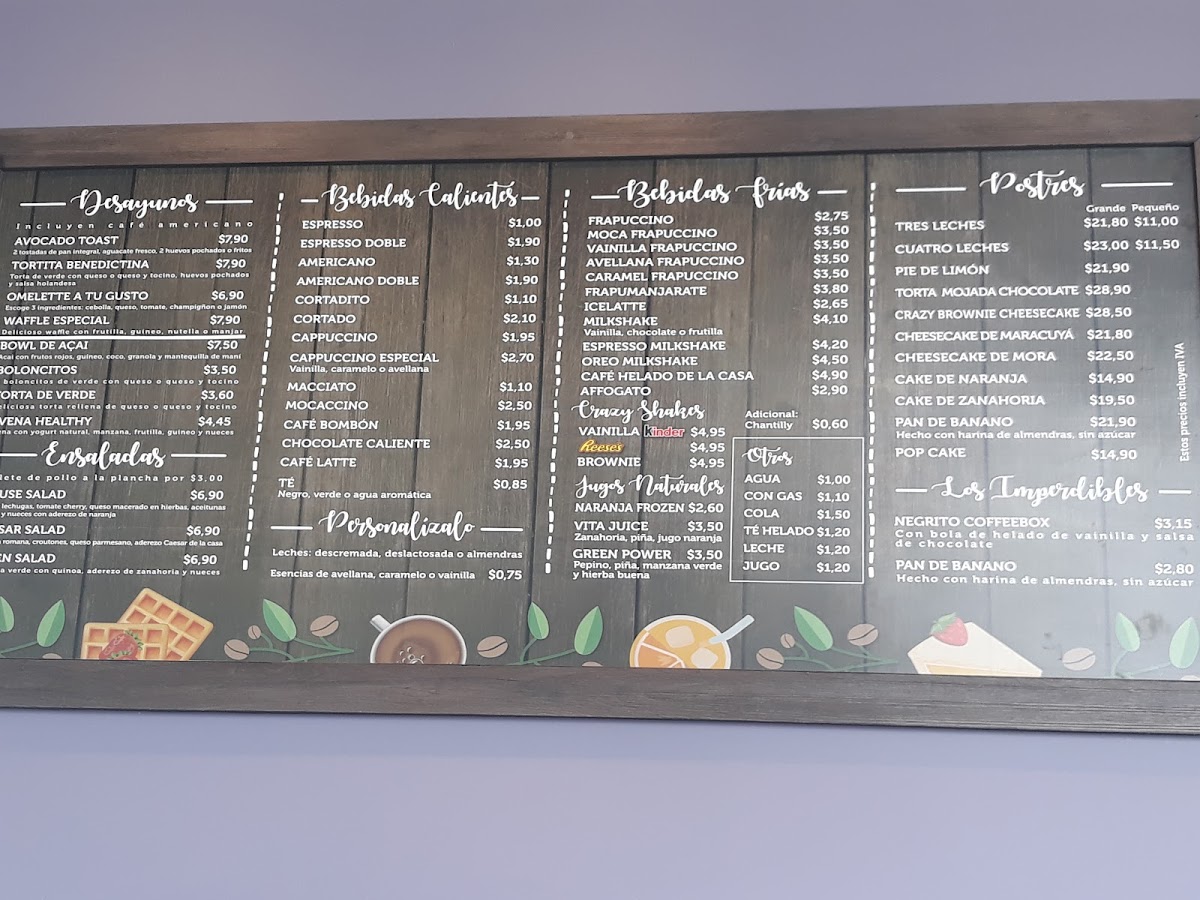 Desayunos
Incluyen café americano
AVOCADO TOAST $7,90
2 tostadas de pan integral, aguacate fresco, 2 huevos pochados o fritos
TORTITA BENEDICTINA $7,90
Torta de verde con queso o queso y tocino, huevos pochados
y salsa holandesa
OMELETTE A TU GUSTO $6,90
Escoge 3 ingredientes: cebolla, queso, tomate, champigñon o jamón
WAFFLE ESPECIAL $7,90
Delicioso waffle con frutilla, guineo, nutella o manjar
BOWL DE AÇAI $7,50
Açai con frutos rojos, guineo, coco, granola y mantequilla de maní
BOLONCITOS $3,50
boloncitos de verde con queso o queso y tocino
TORTA DE VERDE $3,60
eliciosa torta rellena de queso o queso y tocino
VENA HEALTHY $4,45
na con yogurt natural, manzana, frutilla, guineo y nueces
Ensaladas
lete de pollo a la plancha por $3.00
USE SALAD $6,90
lechugas, tomate cherry, queso macerado en hierbas, aceitunas
y nueces con aderezo de naranja
SAR SALAD $6,90
romana, croutones, queso parmesano, aderezo Caesar de la casa
EN SALAD $6,90
a verde con quinoa, aderezo de zanahoria y nueces
Bebidas Calientes
ESPRESSO $1,00
ESPRESSO DOBLE $1,90
AMERICANO $1,30
AMERICANO DOBLE $1,90
CORTADITO $1,10
CORTADO $2,10
CAPPUCCINO $1,95
CAPPUCCINO ESPECIAL $2,70
Vainilla, caramelo o avellana
MACCIATO $1,10
MOCACCINO $2,50
CAFÉ BOMBÓN $1,95
CHOCOLATE CALIENTE $2,50
CAFÉ LATTE $1,95
TÉ $0,85
Negro, verde o agua aromática
Personalízalo
Leches: descremada, deslactosada o almendras
Esencias de avellana, caramelo o vainilla $0,75
Bebidas frías
FRAPUCCINO $2,75
MOCA FRAPUCCINO $3,50
VAINILLA FRAPUCCINO $3,50
AVELLANA FRAPUCCINO $3,50
CARAMEL FRAPUCCINO $3,50
FRAPUMANJARATE $3,80
ICELATTE $2,65
MILKSHAKE $4,10
Vainilla, chocolate o frutilla
ESPRESSO MILKSHAKE $4,20
OREO MILKSHAKE $4,50
CAFÉ HELADO DE LA CASA $4,90
AFFOGATO $2,90
Crazy Shakes
VAINILLA kinder $4,95
Reese's $4,95
BROWNIE $4,95
Adicional:
Chantilly $0,60
Jugos Naturales
NARANJA FROZEN $2,60
VITA JUICE $3,50
Zanahoria, piña, jugo naranja
GREEN POWER $3,50
Pepino, piña, manzana verde
y hierba buena
Otros
AGUA $1,00
CON GAS $1,10
COLA $1,50
TÉ HELADO $1,20
LECHE $1,20
JUGO $1,20
Postres
Grande Pequeño
TRES LECHES $21,80 $11,00
CUATRO LECHES $23,00 $11,50
PIE DE LIMÓN $21,90
TORTA MOJADA CHOCOLATE $28,90
CRAZY BROWNIE CHEESECAKE $28,50
CHEESECAKE DE MARACUYÁ $21,80
CHEESECAKE DE MORA $22,50
CAKE DE NARANJA $14,90
CAKE DE ZANAHORIA $19,50
PAN DE BANANO $21,90
Hecho con harina de almendras, sin azúcar
POP CAKE $14,90
Estos precios incluyen IVA
Los Imperdibles
NEGRITO COFFEEBOX $3,15
Con bola de helado de vainilla y salsa
de chocolate
PAN DE BANANO $2,80
Hecho con harina de almendras, sin azúcar